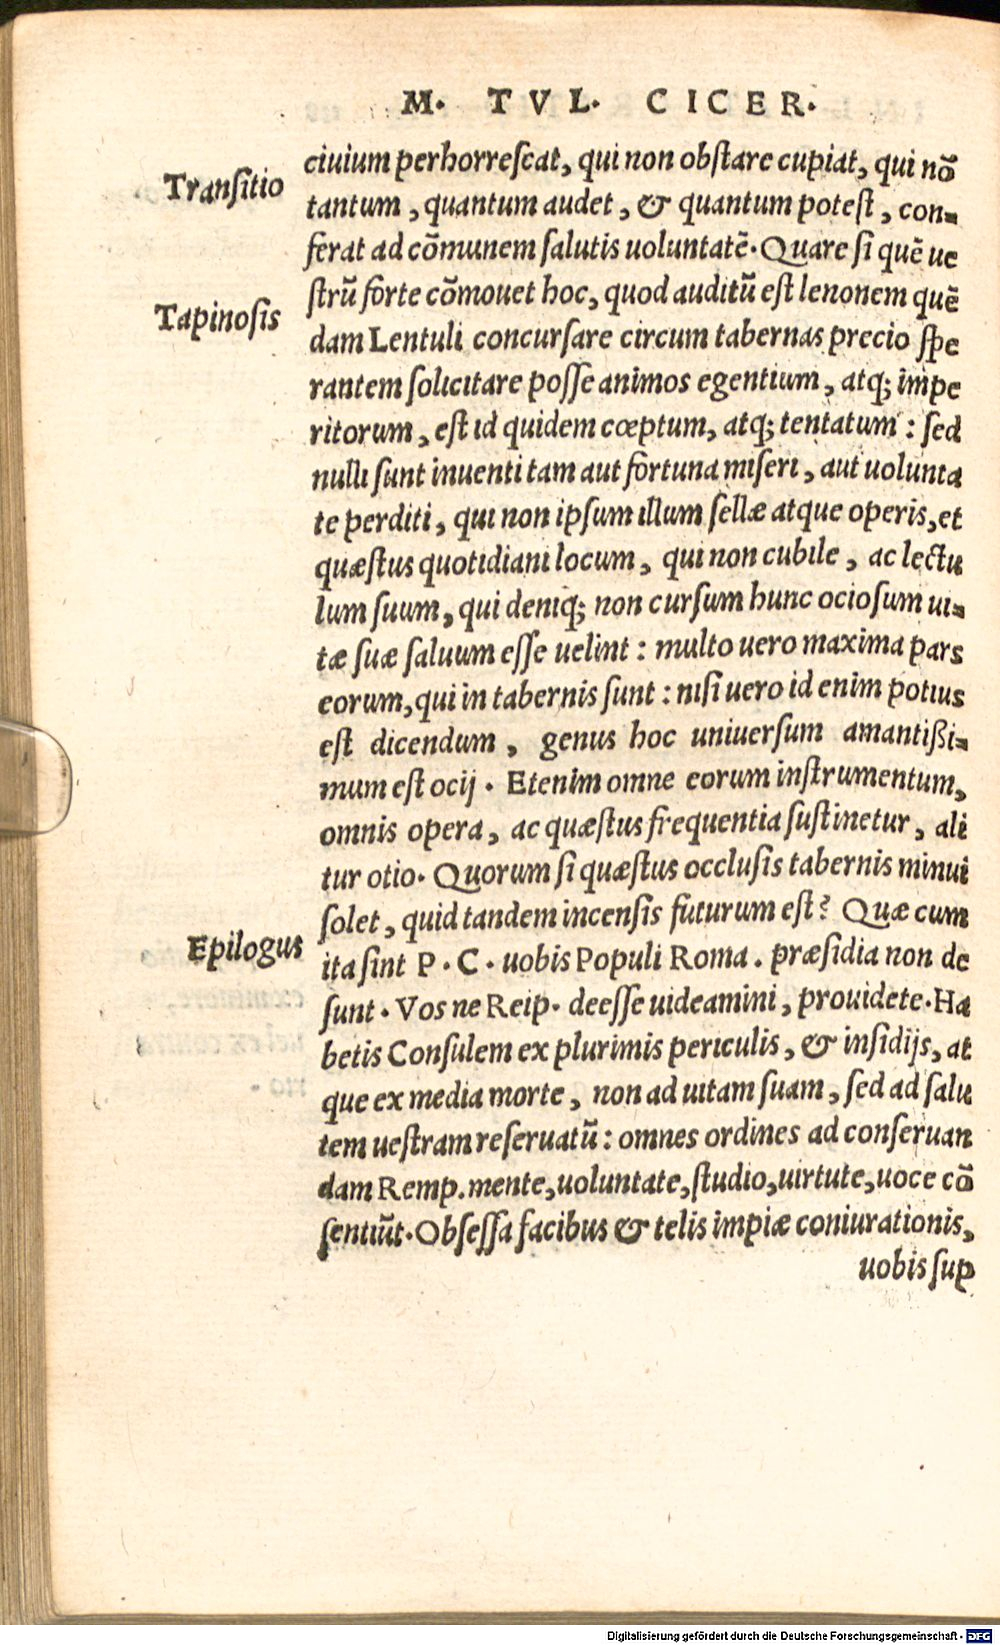 M. TVL. CICER.
ciuium perhorreſcat, qui non obſtare cupiat, qui nõ
Tranſitio
tantum, quantum audet, & quantum poteſt, con-
ferat ad cõmunem ſalutis uoluntatẽ. Quare ſi quẽ ue
ſtrũ forte cõmouet hoc, quod auditũ eſt lenonem quẽ
Tapinoſis
dam Lentuli concurſare circum tabernas, precio ſpe
rantem ſolicitare poſſe animos egentium, atq; impe
ritorum, eſt id quidem cœptum, atq; tentatum: ſed
nulli ſunt inuenti tam aut fortuna miſeri, aut uolunta
te perditi, qui non ipſum illum ſellæ atque operis, et
quæſtus quotidiani locum, qui non cubile, ac lectu
lum ſuum, qui deniq; non curſum hunc ocioſum ui-
tæ ſuæ ſaluum eſſe uelint: multo uero maxima pars
eorum, qui in tabernis ſunt: niſi uero id enim potius
eſt dicendum, genus hoc uniuerſum amantißi-
mum eſt ocij. Etenim omne eorum inſtrumentum,
omnis opera, ac quæſtus frequentia ſuſtinetur, ali
tur otio. Quorum ſi quæſtus occluſis tabernis minui
ſolet, quid tandem incenſis futurum eſt? Quæ cum
Epilogus
ita ſint P. C. uobis Populi Roma. præſidia non de
ſunt. Vos ne Reip. deeſſe uideamini, prouidete. Ha
betis Conſulem ex plurimis periculis, & inſidijs, at
que ex media morte, non ad uitam ſuam, ſed ad ſalu
tem ueſtram reſeruatũ: omnes ordines ad conſeruan
dam Remp. mente, uoluntate, ſtudio, uirtute, uoce cõ
ſentiũt. Obſeſſa facibus & telis impiæ coniurationis,
uobis ſup
Digitalisierung gefördert durch die Deutsche Forschungsgemeinschaft - DFG